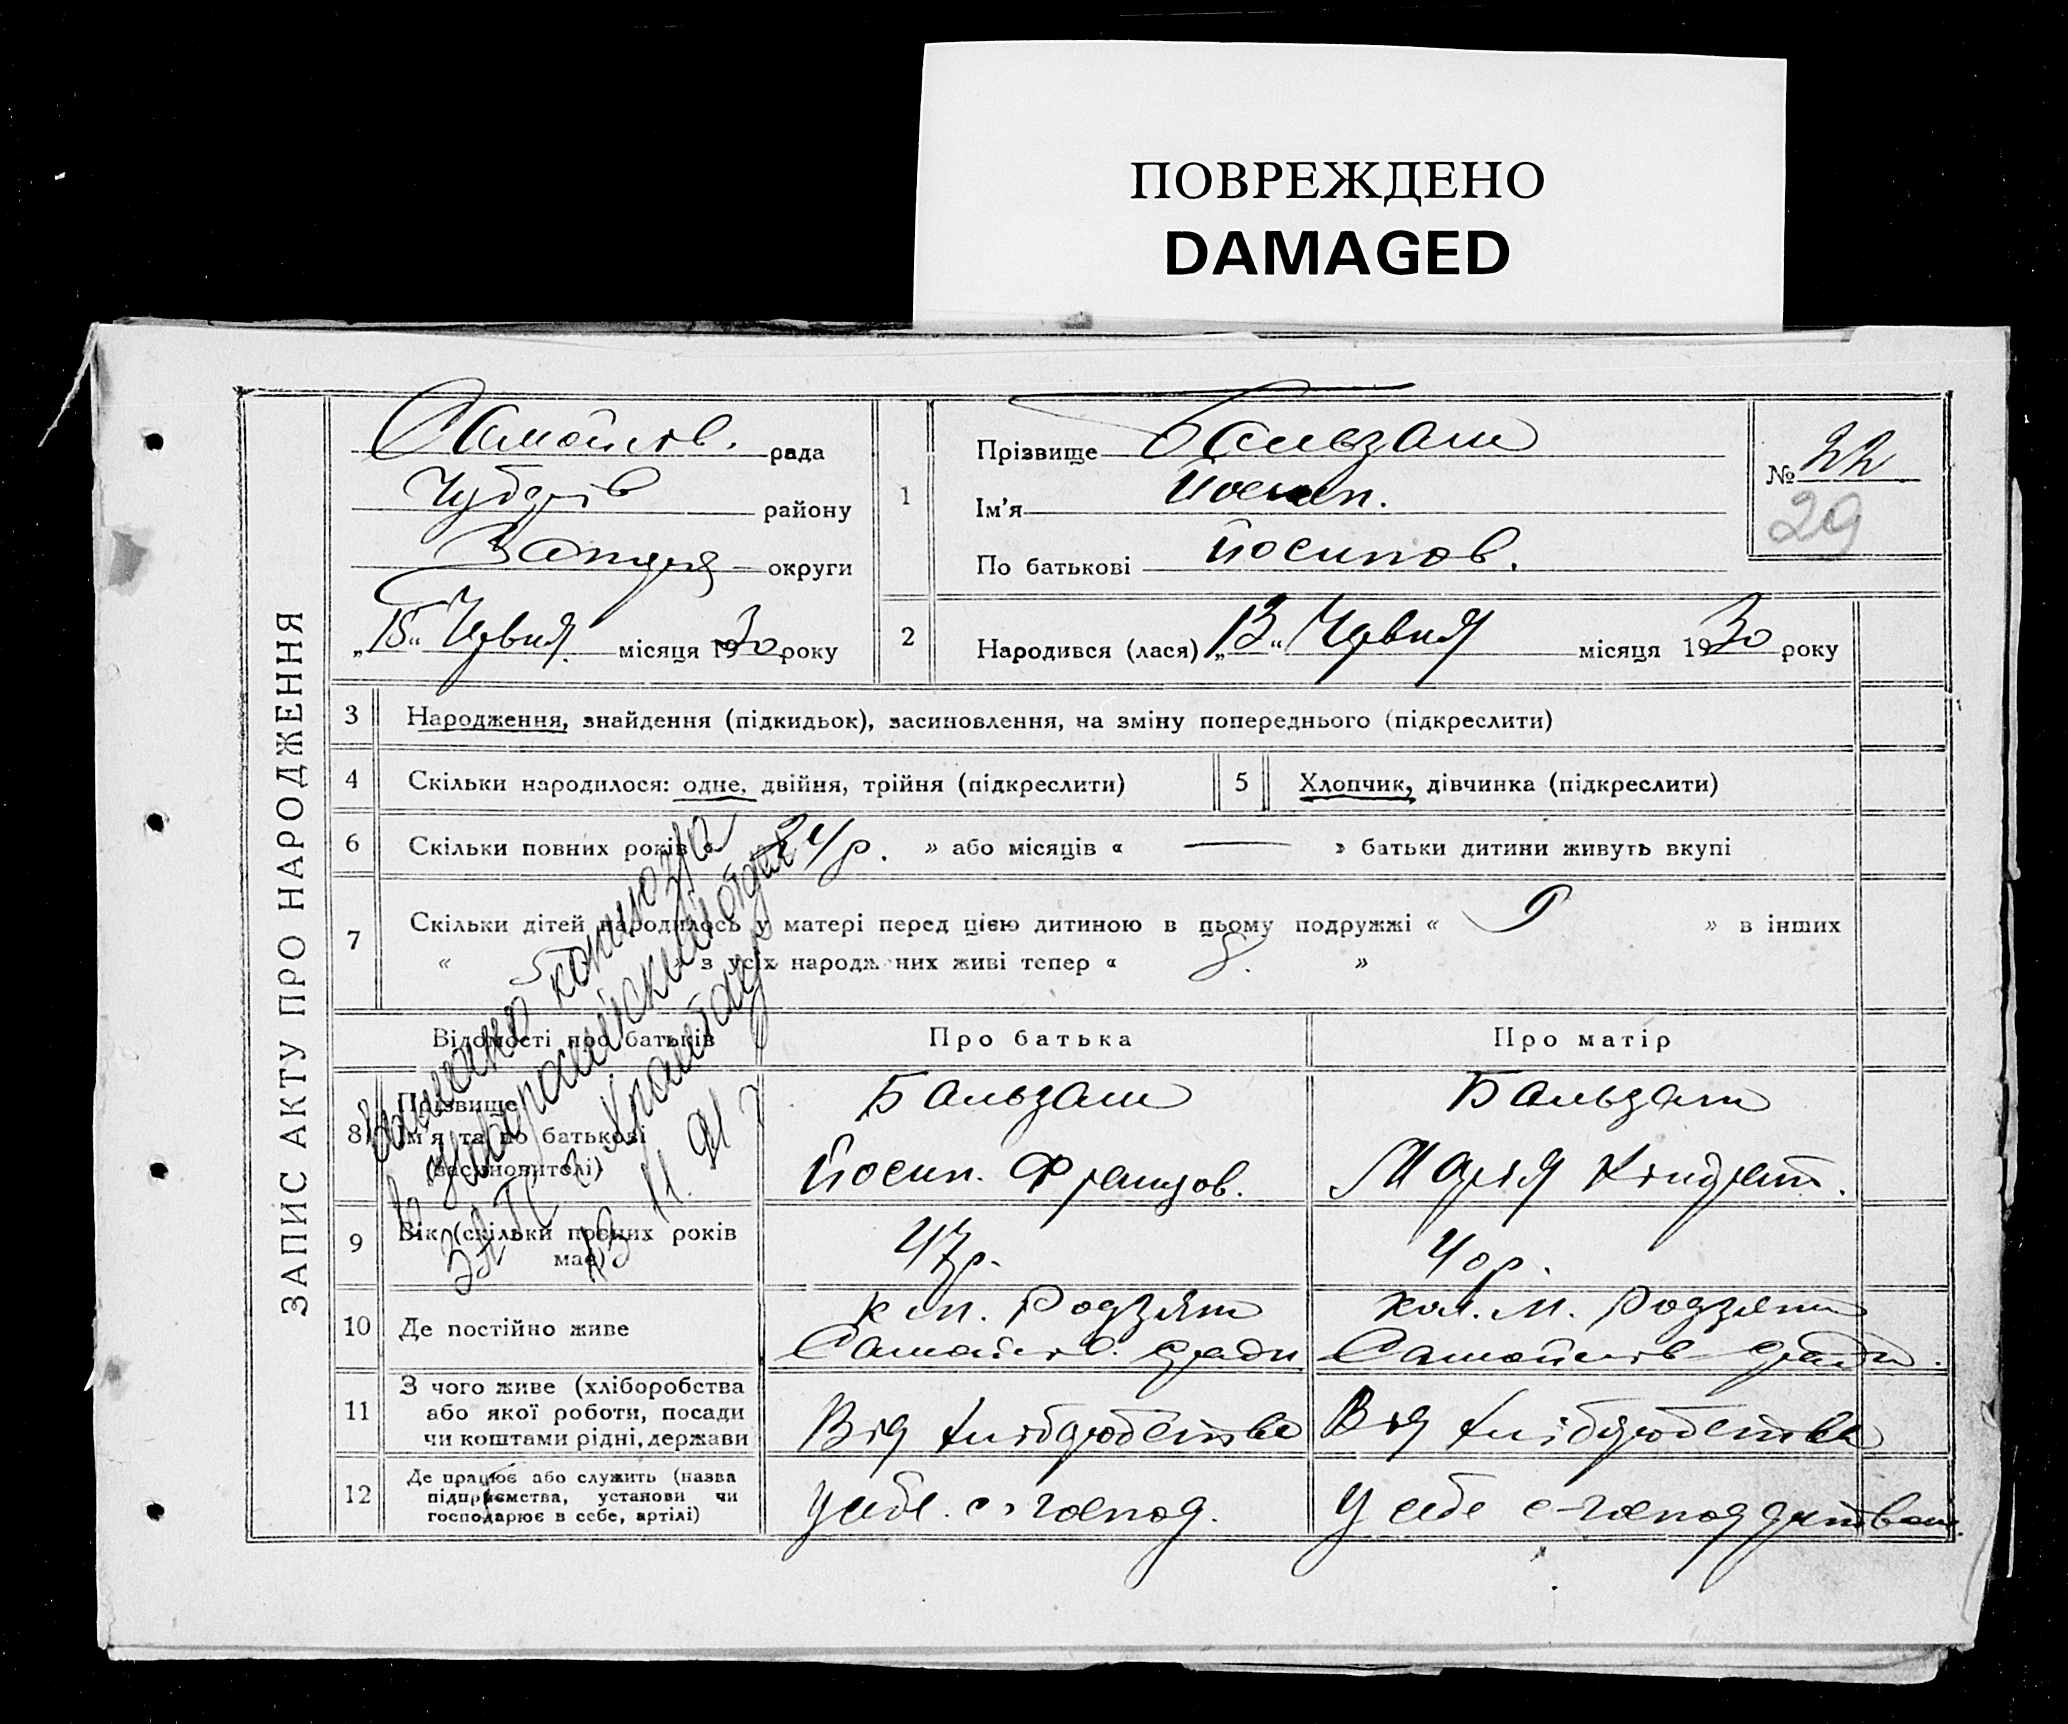 ПОВРЕЖДЕНО
DAMAGED
ЗАПИС АКТУ ПРО НАРОДЖЕННЯ
Самойлів. рада
Чубарів району
Запоріз округи
„15“ Червня місяця 1930 року
1
Прізвище Бальзам
Ім'я Йосип.
По батькові Йосипов.
№ 22
29
2
Народився (лася) „13“ Червня місяця 1930 року
3 Народження, знайдення (підкидьок), засиновлення, на зміну попереднього (підкреслити)
4 Скільки народилося: одне, двійня, трійня (підкреслити)
5 Хлопчик, дівчинка (підкреслити)
6 Скільки повних років « 24/р. » або місяців « — » батьки дитини живуть вкупі
7 Скільки дітей народилось у матері перед цією дитиною в цьому подружжі « 9 » в інших
« » з усіх народжених живі тепер « 8. »
Відомості про батьків
Про батька
Про матір
8 Прізвище
Ім'я та по батькові
(засиновителі)
Бальзам
Йосип. Францов.
Бальзам
Марія Кіндрат.
9 Вік (скільки повних років має)
47р.
40р.
10 Де постійно живе
к м. Родзям
Самойлів. ради
кол. м. Родзям
Самойлів ради.
11 З чого живе (хліборобства
або якої роботи, посади
чи коштами рідні, держави
Від хліборобства
Від хліборобства
12 Де працює або служить (назва
підприємства, установи чи
господарює в себе, артілі)
У себе с-господ.
У себе с-госпо
копию
в
11. 91 г